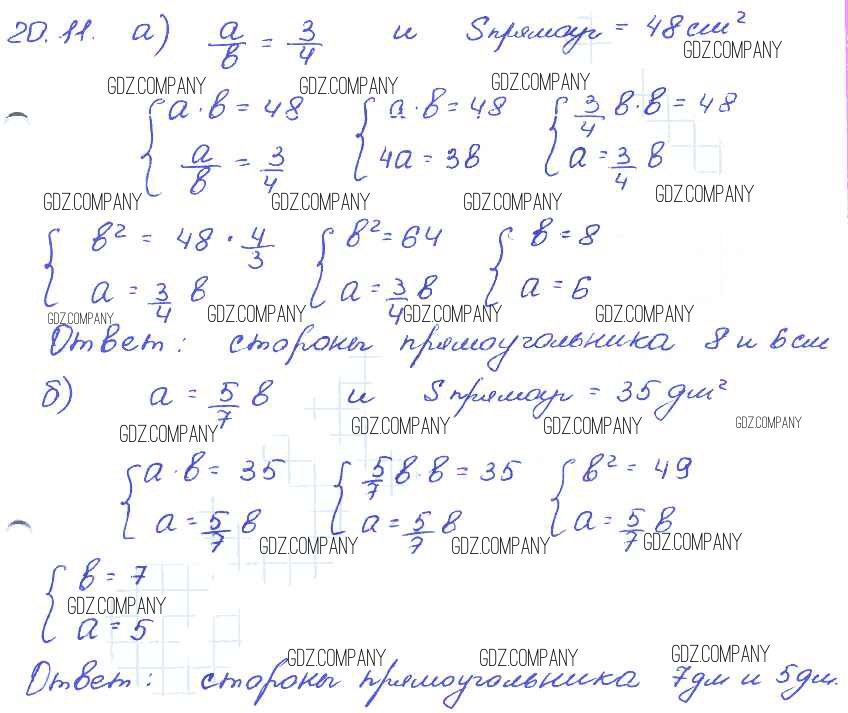 20.11. а) a/b = 3/4 и Sпрямоуг = 48 см²
GDZ.COMPANY
GDZ.COMPANY GDZ.COMPANY GDZ.COMPANY
{ a · b = 48 { a · b = 48 { 3/4 b · b = 48
a/b = 3/4 4a = 3b a = 3/4 b
GDZ.COMPANY GDZ.COMPANY GDZ.COMPANY GDZ.COMPANY
{ b² = 48 · 4/3 { b² = 64 { b = 8
a = 3/4 b a = 3/4 b a = 6
GDZ.COMPANY GDZ.COMPANY GDZ.COMPANY GDZ.COMPANY
Ответ: стороны прямоугольника 8 и 6 см
б) a = 5/7 b и Sпрямоуг = 35 дм²
GDZ.COMPANY GDZ.COMPANY GDZ.COMPANY GDZ.COMPANY
{ a · b = 35 { 5/7 b · b = 35 { b² = 49
a = 5/7 b a = 5/7 b a = 5/7 b
GDZ.COMPANY GDZ.COMPANY GDZ.COMPANY
{ b = 7
GDZ.COMPANY
a = 5
GDZ.COMPANY GDZ.COMPANY GDZ.COMPANY
Ответ: стороны прямоугольника 7дм и 5дм.